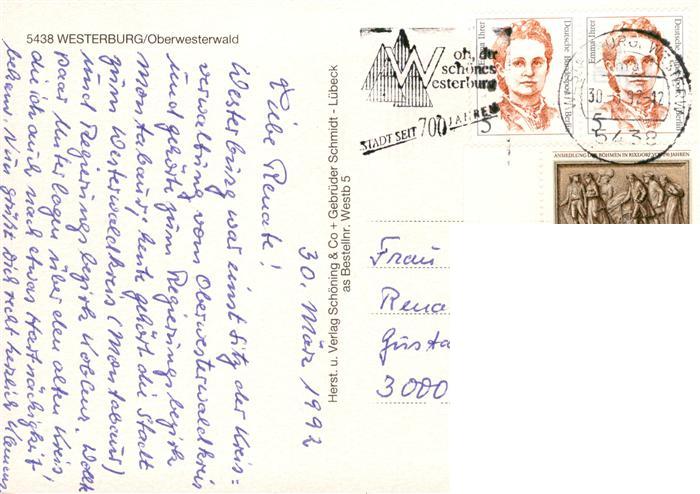 5438 WESTERBURG/Oberwesterwald
30. März 1992
Liebe Renate!
Westerburg war einst Sitz der Kreis=
verwaltung vom Oberwesterwaldkreis
und gehörte zum Regierungsbezirk
Montabaur, heute gehört die Stadt
zum Westerwaldkreis (Montabaur)
und Regierungsbezirk Koblenz.
paar Unterlagen über den alten Kreis,
die ich auch nach etwas Hartnäckigkeit
bekam. Nun grüßt Dich recht herzlich Klemens
Herst. u. Verlag Schöning & Co + Gebrüder Schmidt - Lübeck
as Bestellnr. Westb 5
oh, du
schönes
Westerburg
STADT SEIT 700 JAHREN
Emma Ihrer
Deutsche Bundespost Berlin
5
Emma Ihrer
Deutsche Bundespost Berlin
5
5438
ANSIEDLUNG DER BÖHMEN IN RIXDORF VOR 250 JAHREN
Frau
Rena
Gusta
3000